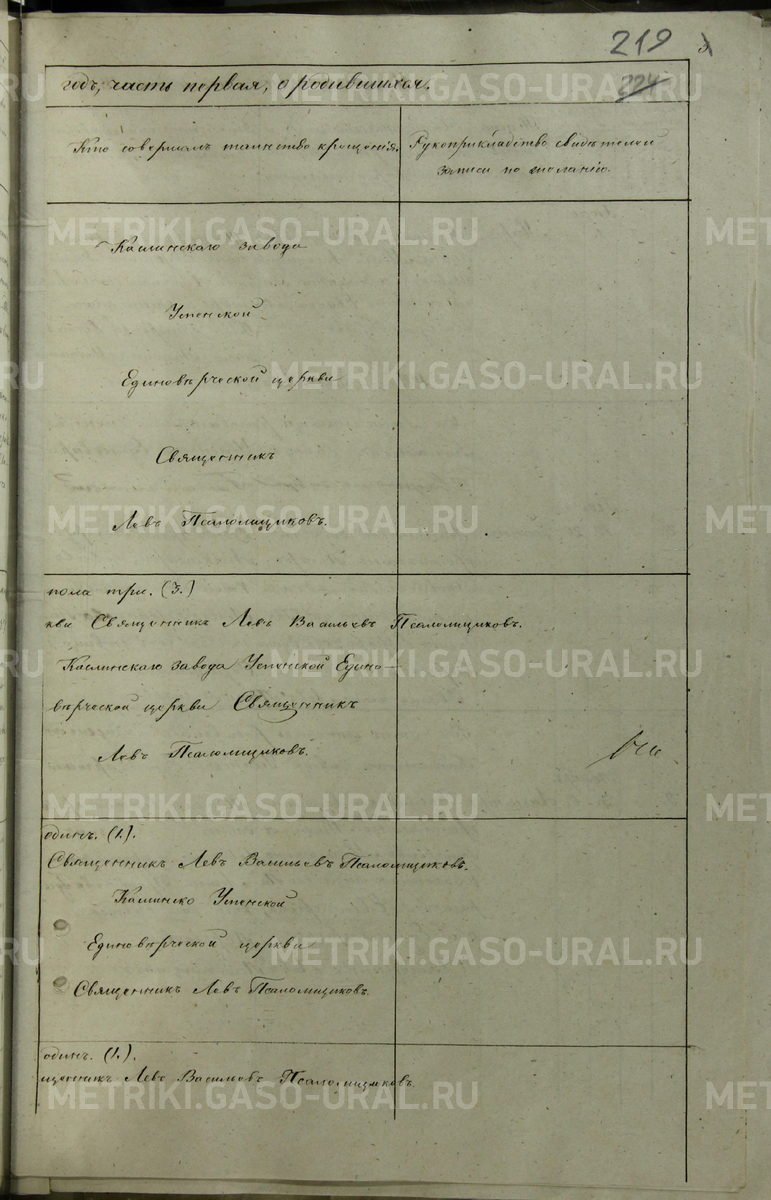 219
3
224
годъ, часть первая, о родившихся.
Кто совершалъ таинство крещенія.
Рукоприкладство свидѣтелей
записи по желанію.
Каслинскаго завода
Успенской
Единовѣрческой церкви
Священникъ
Левъ Псаломщиковъ.
пола три. (3.)
кви Священникъ Левъ Васильевъ Псаломщиковъ.
Каслинскаго завода Успенской Едино-
вѣрческой церкви Священникъ
Левъ Псаломщиковъ.
одинъ. (1.).
Священникъ Левъ Васильевъ Псаломщиковъ.
Каслинско Успенской
Единовѣрческой церкви
Священникъ Левъ Псаломщиковъ.
одинъ. (1.).
щенникъ Левъ Васильевъ Псаломщиковъ.
METRIKI.GASO-URAL.RU